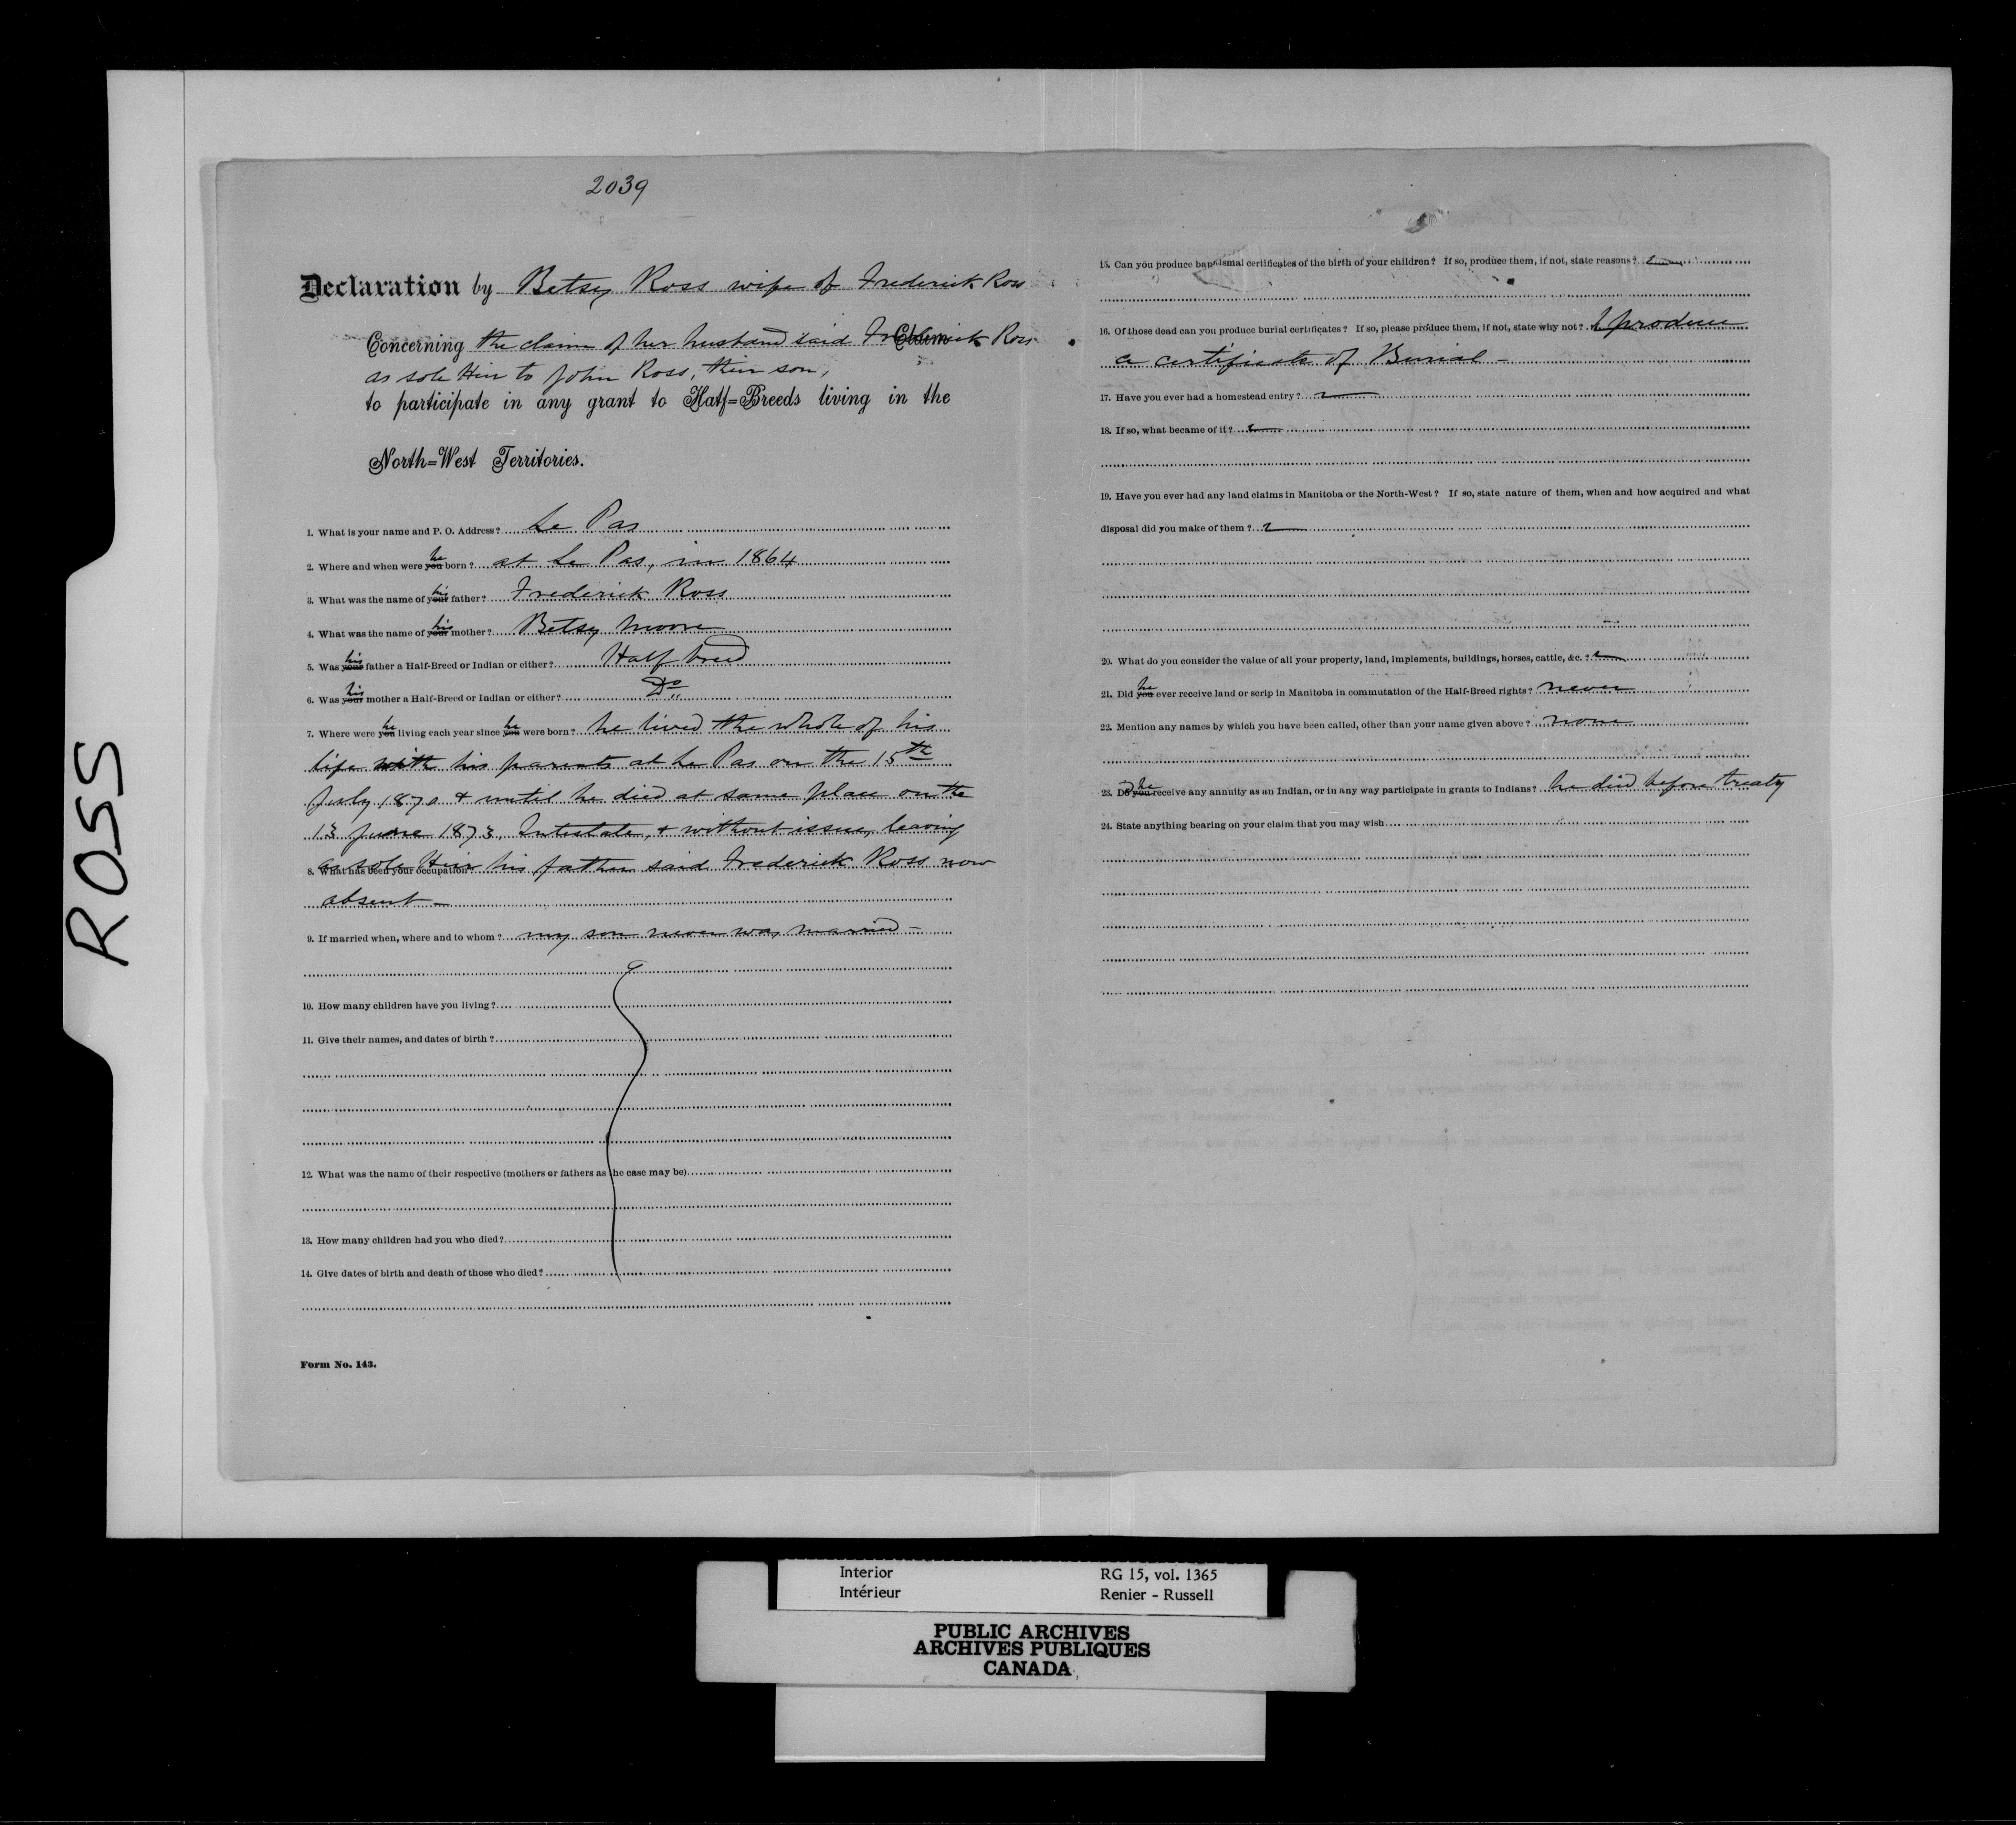 ROSS
2039
Declaration by Betsy Ross wife of Frederick Ross
Concerning the claim of her husband said Frederick Ross
as sole Heir to John Ross, their son,
to participate in any grant to Half=Breeds living in the
North=West Territories.
1. What is your name and P. O. Address? Le Pas
2. Where and when were you he born? at Le Pas, in 1864
3. What was the name of your his father? Frederick Ross
4. What was the name of your his mother? Betsy Moore
5. Was your his father a Half-Breed or Indian or either? Half breed
6. Was your his mother a Half-Breed or Indian or either? Do
7. Where were you he living each year since you he were born? he lived the whole of his
life with his parents at Le Pas on the 15th
July 1870 & until he died at same place on the
13 June 1873, Intestate, & without issue, leaving
as sole Heir his father said Frederick Ross now
8. What has been your occupation?
absent —
9. If married when, where and to whom? my son never was married —
10. How many children have you living?
11. Give their names, and dates of birth?
12. What was the name of their respective (mothers or fathers as the case may be)
13. How many children had you who died?
14. Give dates of birth and death of those who died?
Form No. 143.
15. Can you produce baptismal certificates of the birth of your children? If so, produce them, if not, state reasons?
16. Of those dead can you produce burial certificates? If so, please produce them, if not, state why not? I produce
a certificate of Burial —
17. Have you ever had a homestead entry?
18. If so, what became of it?
19. Have you ever had any land claims in Manitoba or the North-West? If so, state nature of them, when and how acquired and what
disposal did you make of them?
20. What do you consider the value of all your property, land, implements, buildings, horses, cattle, &c.?
21. Did you he ever receive land or scrip in Manitoba in commutation of the Half-Breed rights? never
22. Mention any names by which you have been called, other than your name given above? none
23. Do you he receive any annuity as an Indian, or in any way participate in grants to Indians? he died before treaty
24. State anything bearing on your claim that you may wish
Interior RG 15, vol. 1365
Intérieur Renier - Russell
PUBLIC ARCHIVES
ARCHIVES PUBLIQUES
CANADA